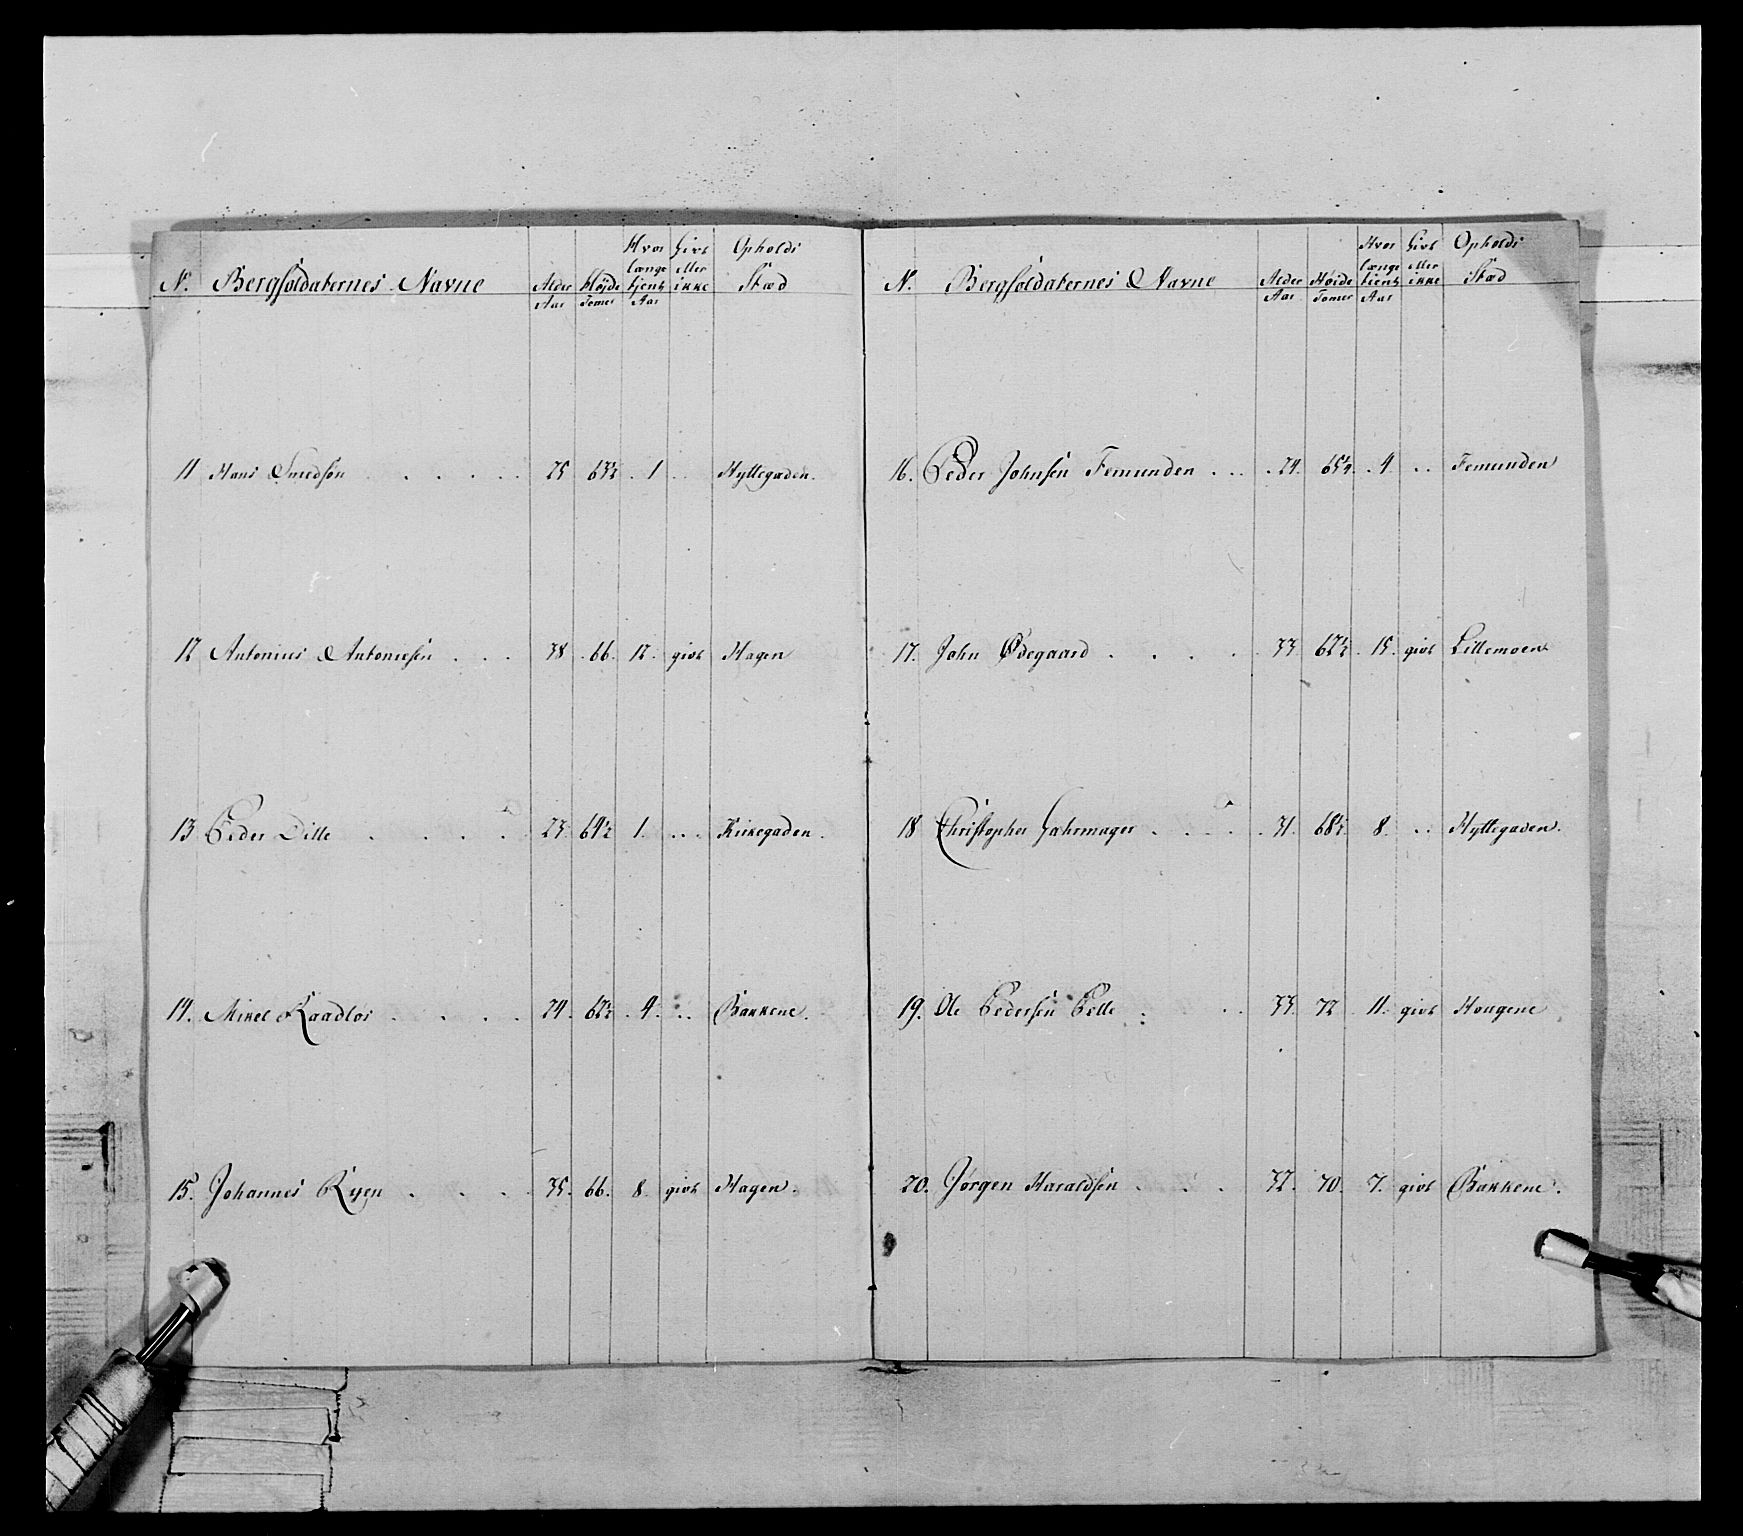 N. Bergsoldaternes Navne Alder Aar Höyde Tomer Hvor længe tjent Aar Givt eller ikke Opholds Stæd
11 Hans Smedsön 25 63½ 1 Hyttegaden.
12 Antonius Antoniesen 38 66 12 givt Hagen
13 Peder Dille 23 64½ 1 Kirkegaden.
14. Mikel Raadlös 24 62½ 4 Bakkene.
15. Johannes Ryen 35 66 8 givt Hagen.
N. Bergsoldaternes Navne Alder Aar Høide Tomer Hvor længe tient Aar Givt eller ikke Opholds Stæd
16. Peder Johnsen Femunden 24 4 Femunden
17. John Ødegaard 33 62½ 15 givt Lillemoen
18 Christopher 31 68½ 8 Hyttegaden.
19. Ole Pedersen 33 72 11 givt Hougene
20. Jørgen Haraldsen 32 70 7 givt Bakkene.